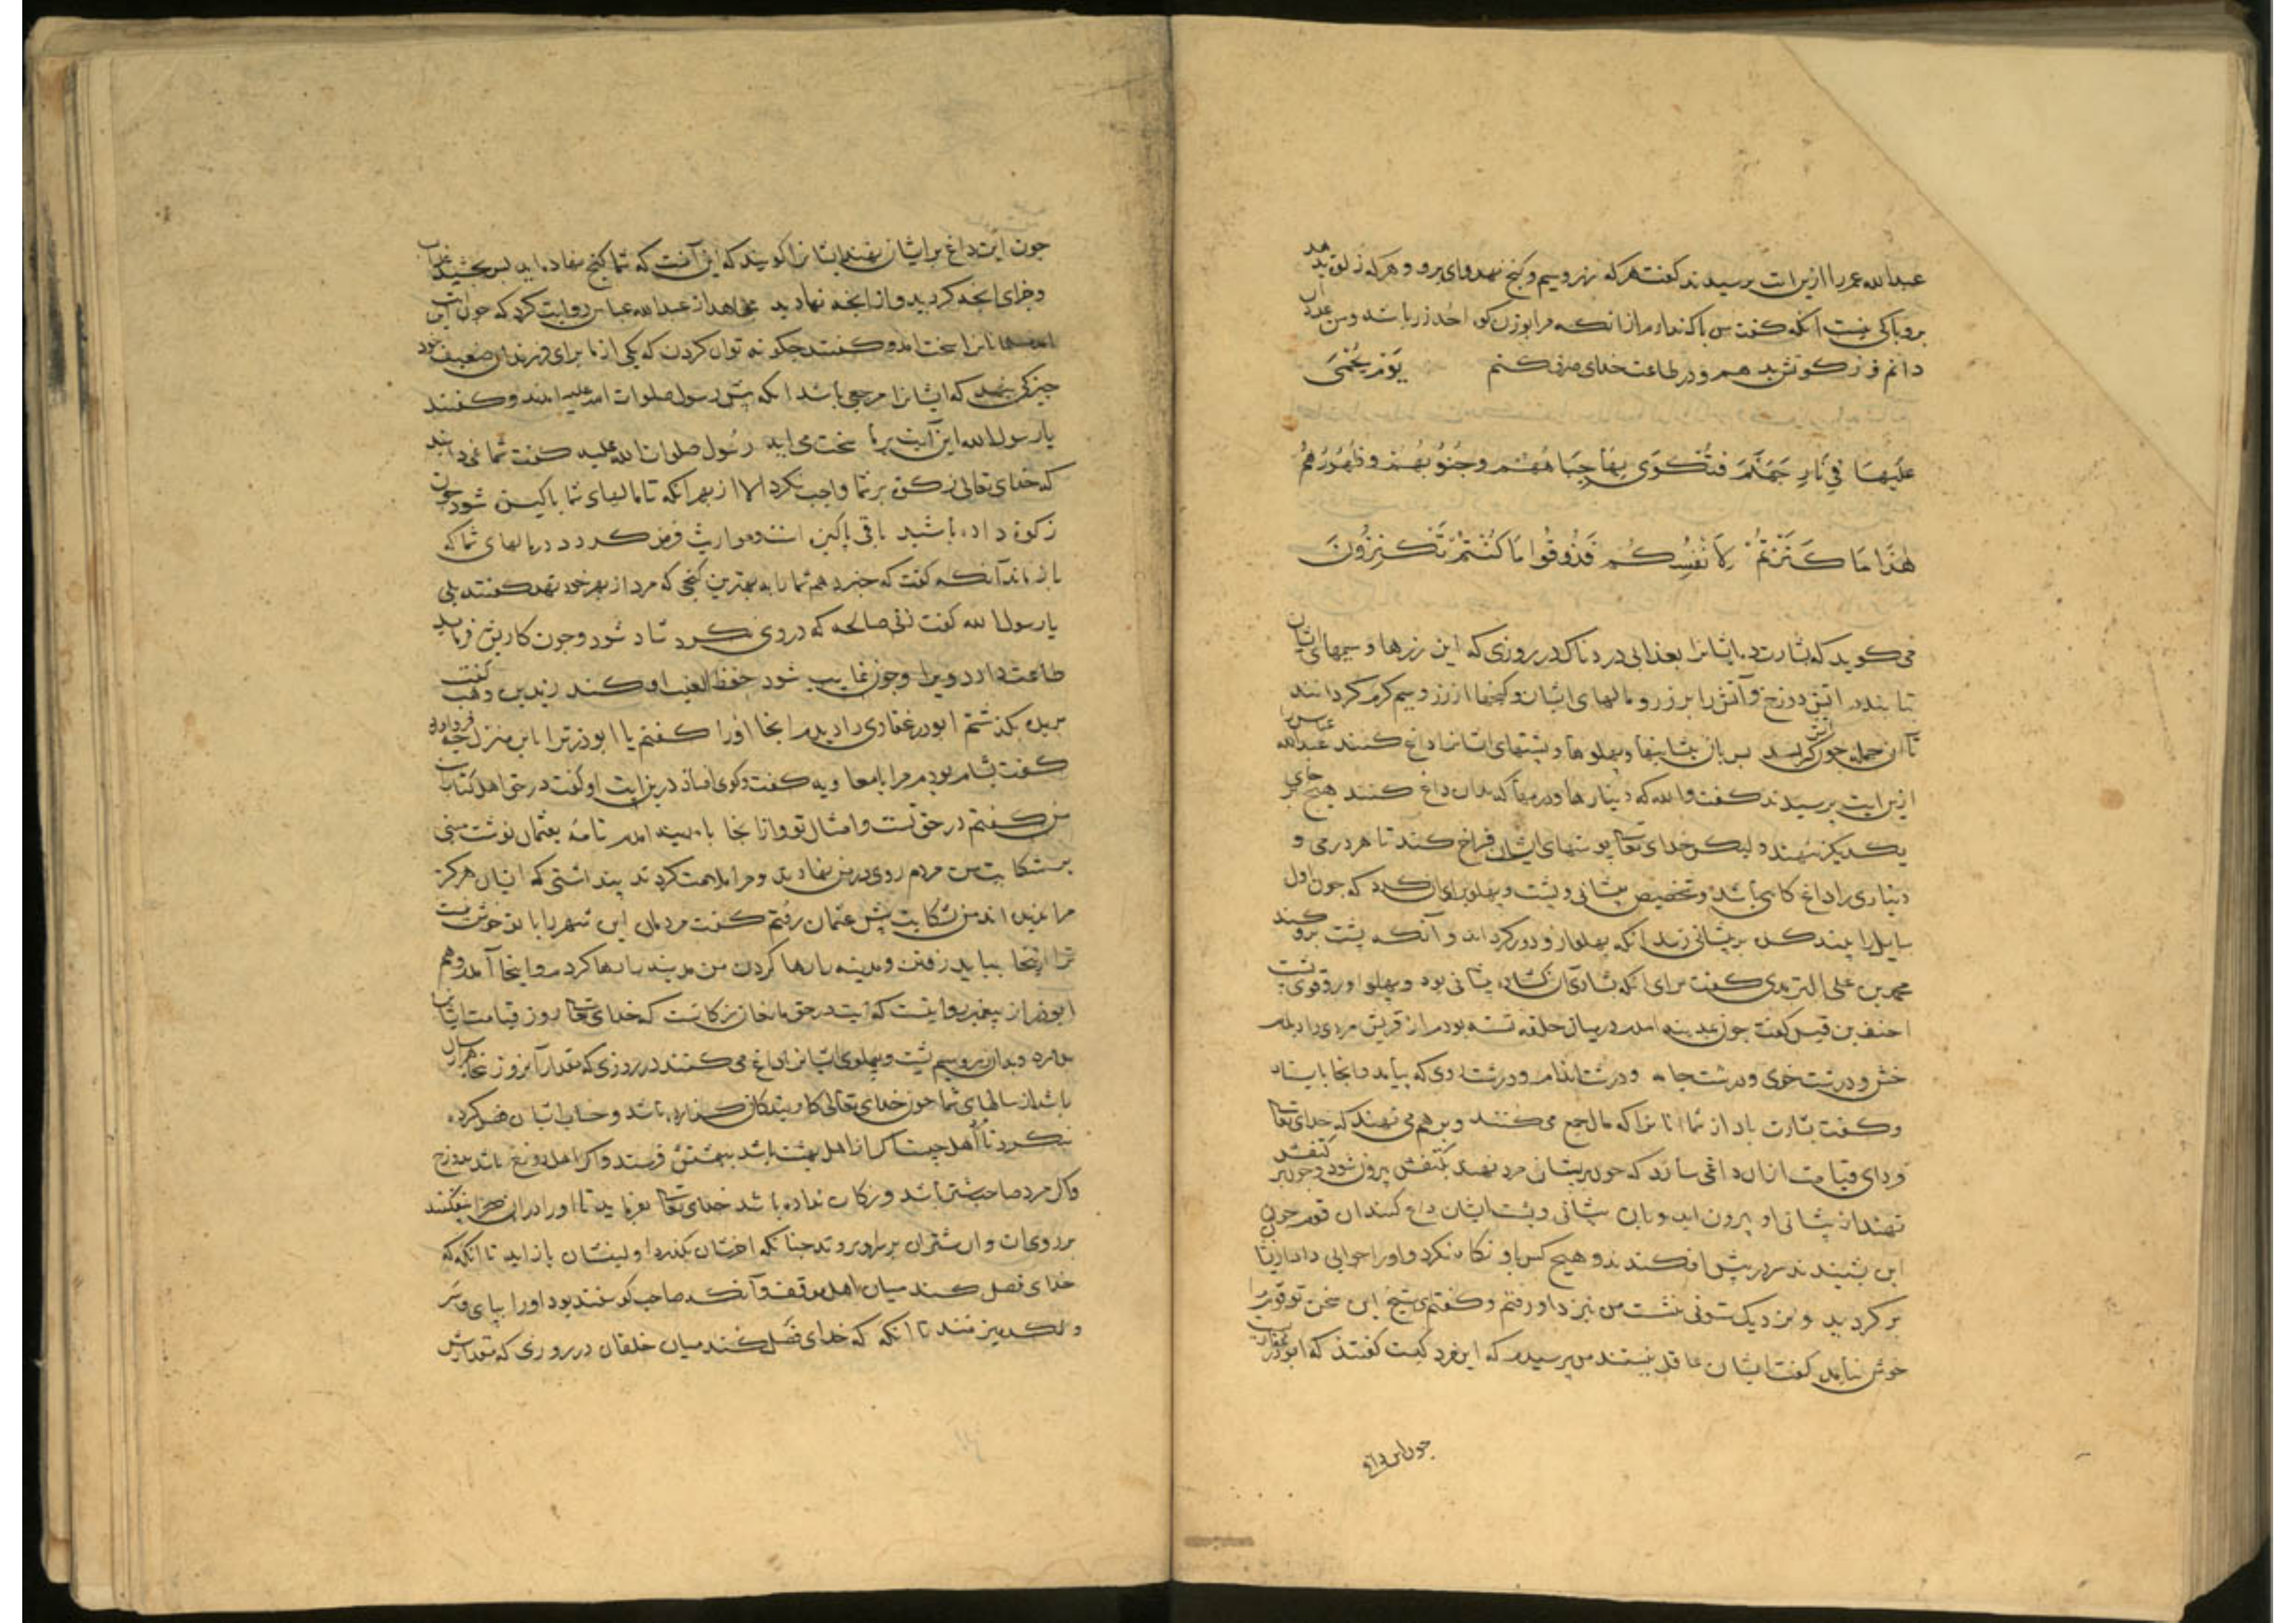 عبدالله عمر را ازین ایت برسیدند کفت هر که زر و سیم و کنج نهد وای برو و هر که زکوة بدهد
برو باکی نیست انکه کفت من باک ندارم از انکه مرا بوزن کوه احُد زر باشد و من عدد ان
دانم و زکوتش بدهم و در طاعت خدای صرف کنم يَوْمَ يُحْمَى
عَلَيْهَا فِي نَارِ جَهَنَّمَ فَتُكْوَى بِهَا جِبَاهُهُمْ وَجُنُوبُهُمْ وَظُهُورُهُمْ
هَذَا مَا كَنَزْتُمْ لِأَنْفُسِكُمْ فَذُوقُوا مَا كُنْتُمْ تَكْنِزُونَ
می کوید که بشارت ده ایشانرا بعذابی دردناک در روزی که این زرها و سیمهای ایشان
بتابند در اتش دوزخ و آتش را بر زر و مالهای ایشان و کنجها از زر و سیم کرم کردانند
تا ان جمله چون اتش کردد بس بان بیشانیها و بهلوها و بشتهای ایشانرا داغ کنند عبدالله عباس را
ازین ایت برسیدند کفت والله که دینارها و درمها که بدان داغ کنند هیچ جای بر
یکدیکر ننهند و لیکن خدای تعالی بوستهای ایشان فراخ کند تا هر درمی و
دیناری را داغ کاهی باشد و تخصیص بیشانی و بشت و بهلو برای ان کرد که چون اول
سایل را بیند کره بر بیشانی زند انکه بهلو ازو دور کرداند و آنکه بشت برو کند
محمد بن علی الترمدی کفت برای انکه بشادی ان کشاده بیشانی بود و بهلو او رو قوی بشت
احنف بن قیس کفت چون بمدینه امدم در میان حلقه نشسته بودم از قریش مردی را دیدم
خشن و درشت خوی و درشت جامه و درشت اندام و درشت روی که بیامد و انجا بایستاد
و کفت بشارت باد از شما انانرا که مال جمع می کنند و بر هم می نهند که خدای تعالی
فردای قیامت ازان داغی سازد که چون بر بیشانی مرد نهند بکتفش بیرون شود و چون بر کتفش
نهند از بیشانی او بیرون اید و بان بیشانی و بشت ایشان داغ کنند ان قوم چون
این بشنیدند سر در بیش افکندند و هیچ کس باو نکاه نکرد و او را جوابی داد از انجا
بر کردید و بنزدیک ستونی بنشست من بنزد او رفتم و کفتم ای شیخ این سخن تو قوم را
خوش نیامد کفت ایشان عاقل نیستند من برسیدم که این مرد کیست کفتند که ابوذر غفاری
چون این داغ
چون این داغ بر ایشان نهند ایشانرا کویند که این آنست که شما کنج نهاده اید بس بچشید عذاب
و جزای انچه کردید و از انچه نهادید مجاهد از عبدالله عباس روایت کرد که چون این ایت
امد مسلمانانرا سخت امد و کفتند چکونه توان کردن که یکی از ما برای فرزندان ضعیف خود
چیزکی بنهد که ایشانرا مرجعی باشد انکه بیش رسول صلوات الله علیه امدند و کفتند
یا رسول الله این آیت بر ما سخت می اید رسُول صلوات الله علیه کفت شما نمی دانید
که خدای تعالی زکوة بر شما واجب نکرد الا از بهر انکه تا مالهای شما باکیزه شود چون
زکوة داده باشید باقی باکیزه است و مواریث فرض کردد در مالهای شما که
باز ماند آنکه کفت که خبر دهم شما را به بهترین کنجی که مرد از بهر خود نهد کفتند بلی
یا رسول الله کفت زنی صالحه که در وی نکرد شاد شود و چون کاریش فرماید
طاعت دارد ویرا و چون غایب شود حفظ الغیب او کند زید بن وهب کفت
بربذه بکذشتم ابوذر غفاری را دیدم انجا اورا کفتم یا ابوذر ترا باین منزل چه فرود اورد
کفت بشام بودم مرا با معاویه کفت و کوی افتاد درین ایت او کفت در حق اهل کتابست
من کفتم در حق تست و امثال تو و از انجا بامدینه امدم نامهٔ بعثمان نوشت مبنی
بر شکایت من مردم روی در من نهادند و مرا ملامت کردند بنداشتی که ایشان هرکز
مرا ندیده اند من شکایت بیش عثمان رفتم کفت مردمان این شهر را با تو خوش نیست
ترا از اینجا بباید رفتن و مدینه رها کردن من مدینه رها کردم و اینجا آمدم و هم
ابوذر از بیغمبر روایتست که آیت در حق مانعان زکاتست که خدای تعالی روز قیامت ایشانرا
بیارد و بدان زر و سیم بشت و بهلوی ایشانرا داغ می کنند در روزی که مقدار آنروز بنجاه هزار سال
باشد از سالهای شما چون خدای تعالی کار بندکان کذارده باشد و حساب ایشان فصل کرده
بنکرد تا اهل چیست اکر از اهل بهشت باشد ببهشتش فرستد و اکر اهل دوزخ باشد بدوزخ
و اکر مرد صاحب شتر باشد و زکات نداده باشد خدای تعالی بفرماید تا او را در ان صحرا بیفکنند
بر روی ان و ان شتران بر سر او بروند چنانکه اخرشان بکذرد اولینشان باز اید تا انکه که
خدای فصل کند میان اهل موقف و آنکه صاحب کوسفند بود او را ببای و سر
و لکد میزنند تا انکه که خدای فصل کند میان خلقان در روزی که مقدارش